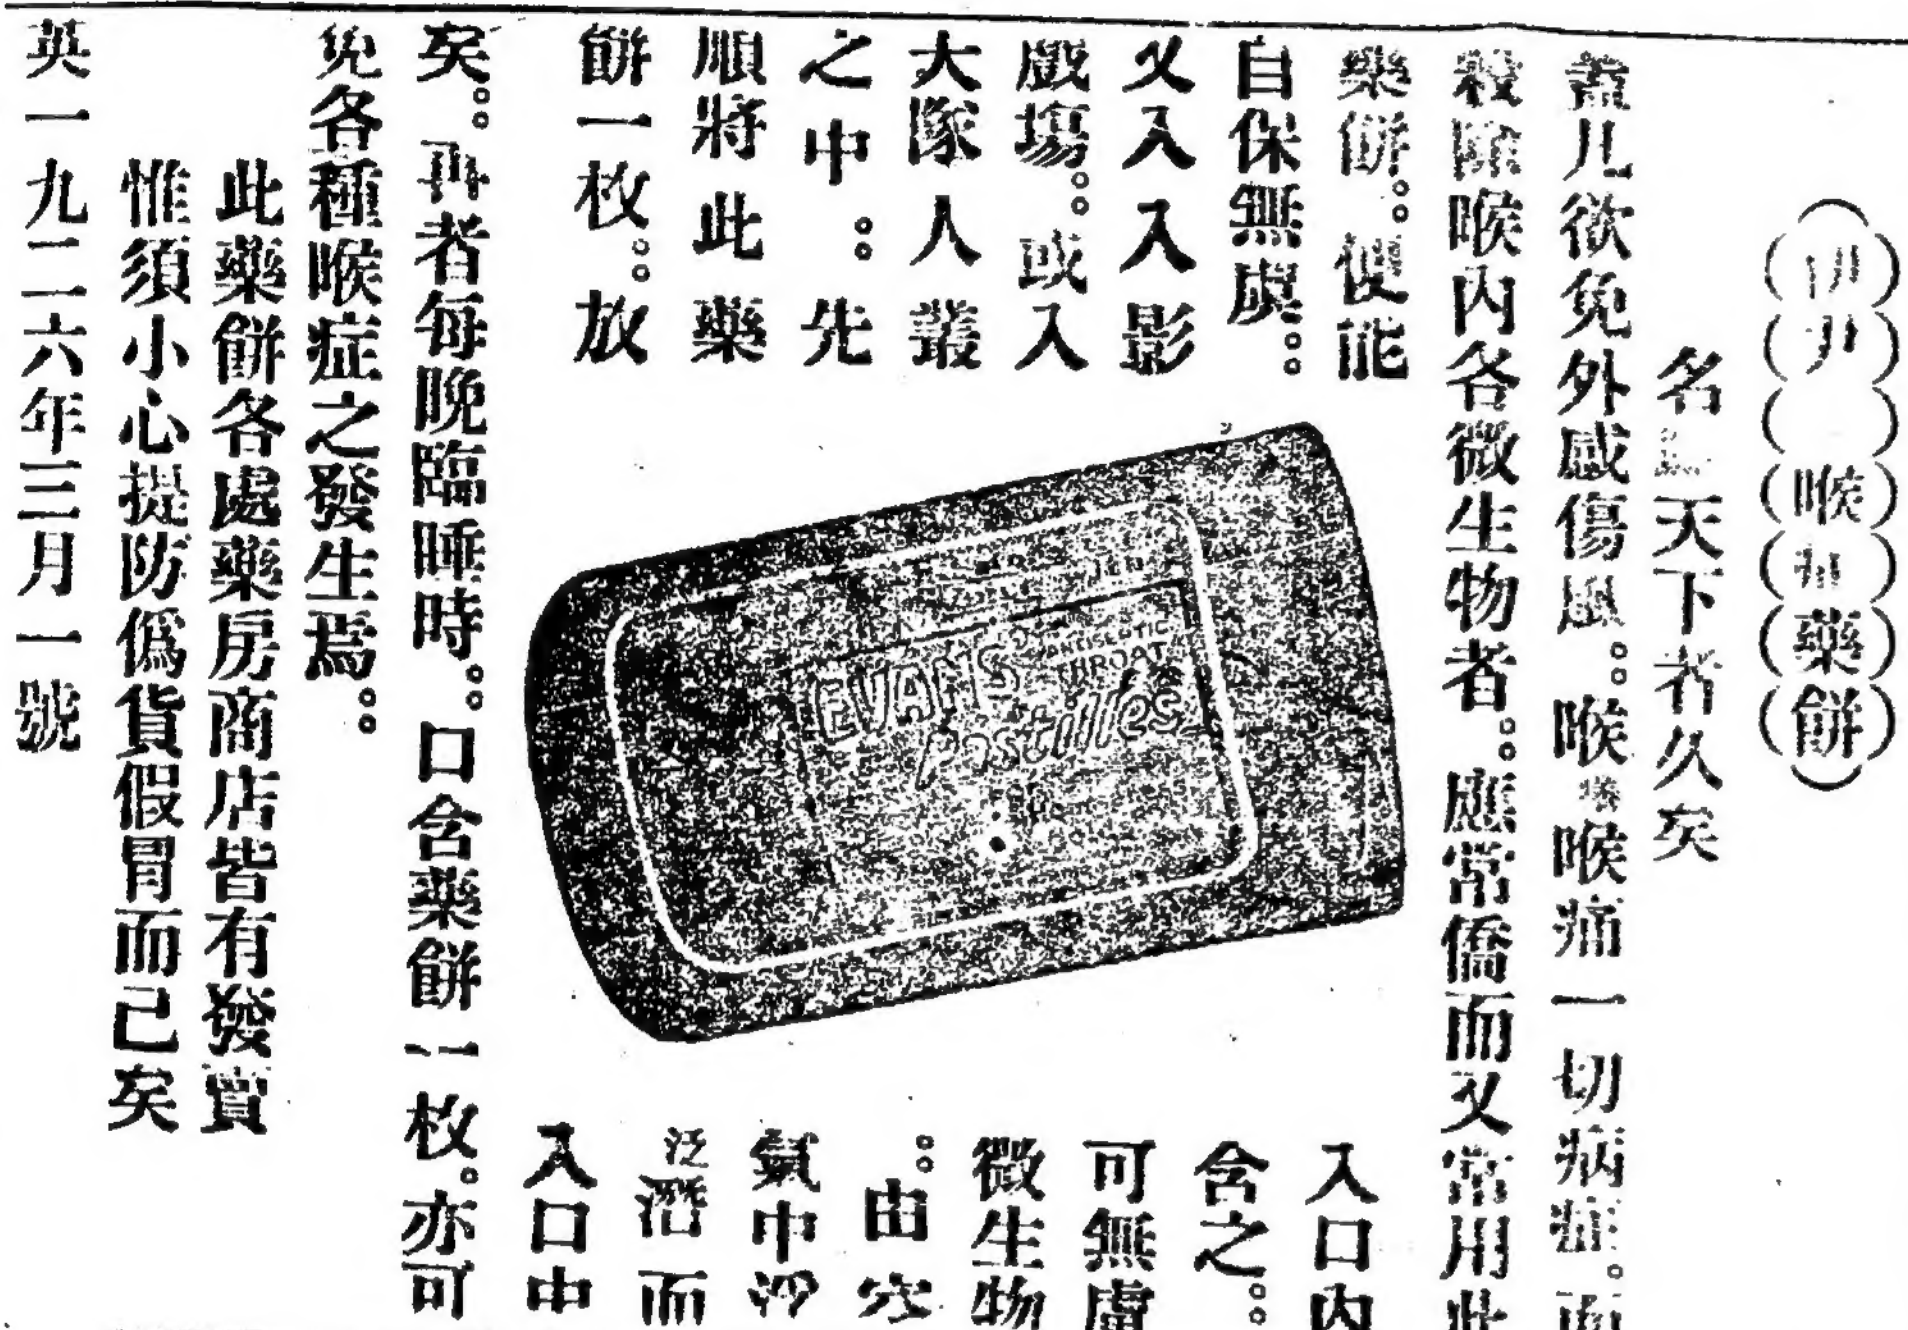 伊尹 喉症藥餅
名 天下者久矣
蓋凡欲免外感傷風。喉 喉痛一切病症。而
殺除喉內各微生物者。應常僑而又常用此
藥餅。便能
自保無虞。
又入入影
戲塲。或入
大隊人叢
之中。先
順將此藥
餅一枚。放
入口內
含之。
可無慮
微生物
。由空
氣中浮
泛潛而
入口中
矣。再者每晚臨睡時。口含藥餅一枚。亦可
免各種喉症之發生焉。
此藥餅各處藥房商店皆有發賣
惟須小心提防僞貨假冐而已矣
英一九二六年三月一號
EVANS
ANTISEPTIC
THROAT
Pastilles